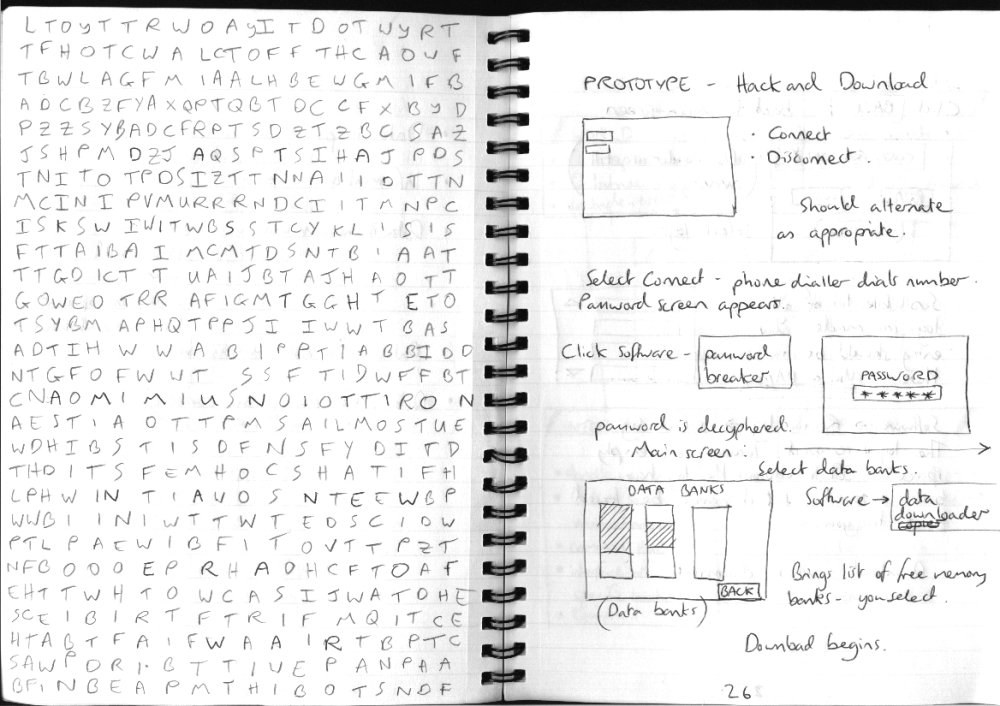 LTOYTTRWOAYITDOTWYRT
TFHOTCWALCTOFFTHCAOUF
TBWLAGFMIAALHBEWGMIFB
ADCBZFYAXQPTQBTDCCFXBYD
PZZSYBADCFRPTSDZTZBCSAZ
JSHPMDZJAQSPTSIHAJPDS
TNITOTPDSIZTTNNAIIDTTN
MCINIPVMURRRNDCIITMNPC
ISKSWIWITWBSSTCYKLISIS
FTTAIBAIMCMTDSNTBIAAT
TTGDICTTUAIJBTAJHAOTT
GOWEOTRRAFIGMTGGHTETO
TSYBMAPHQTPPJIIWWTBAS
ADTIHWWABIPPTIABBIDD
NTGFOFWWTSSFTIDWFFBT
CNAOMIMIUSNOIOTTIRON
AESTIAOTTPMSAILMOSTUE
WDHIBSTISDFNSFYDITD
THDITSFEMHOCSHATIFH
LPHWINTIAUOSNTEEWBP
WWBIINIWTTWTEDSCIDW
PTLPAEWIBFITOVTTPZT
NFBOOOEPRHADHCFTOAF
EHTTWHTOWCASIJWATOHE
SCEIBIRTFTRIFMQITCE
HTABTFAIFWAAIRTBPTC
SAWPDRI.BTTIVEPANPAA
BFINBEAPMTHIBOTSNDF
PROTOTYPE - Hack and Download
· Connect
· Disconnect.
Should alternate
as appropriate.
Select Connect - phone dialler dials number.
Password screen appears.
Click Software - password
breaker
PASSWORD
*****
password is deciphered.
Main screen
Select data banks.
DATA BANKS
BACK
(Data banks)
Software → data
downloader
Brings list of free memory
banks - you select.
Download begins.
26